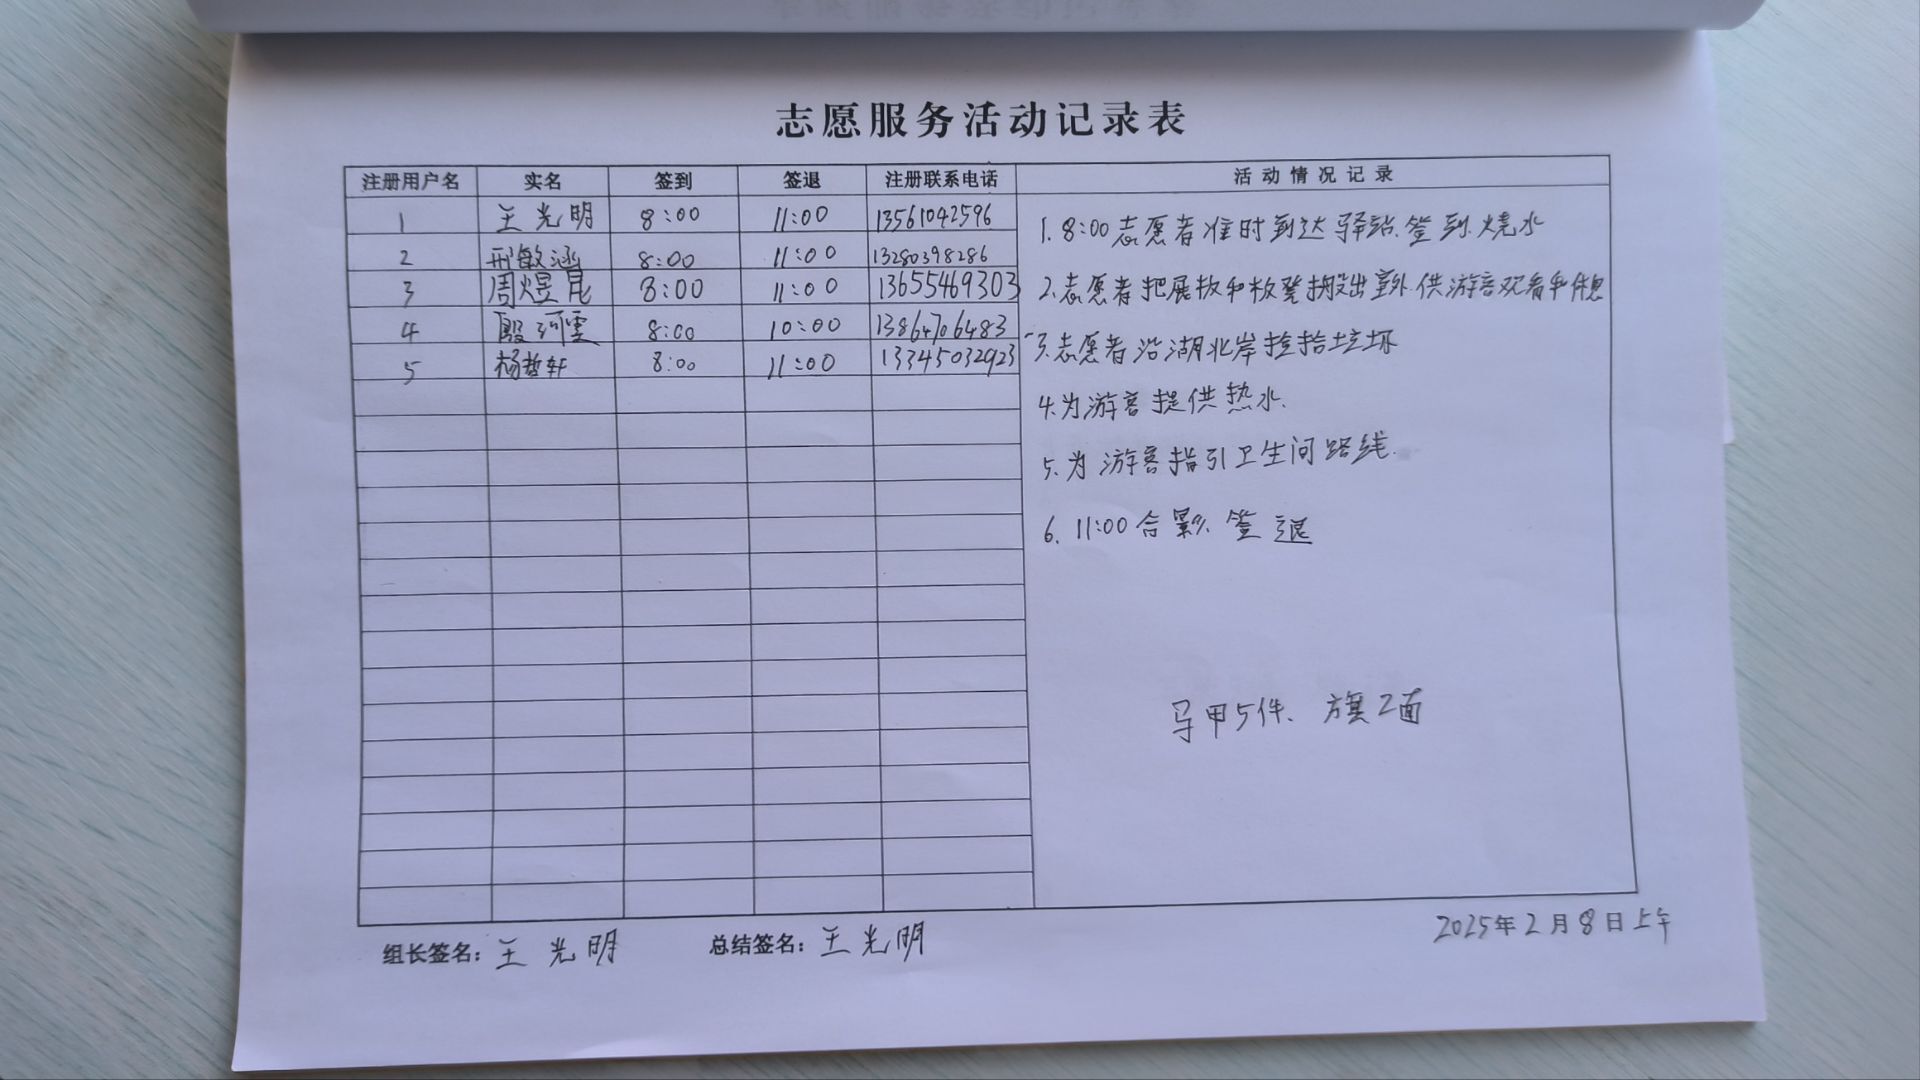 志愿服务活动记录表
注册用户名 实名 签到 签退 注册联系电话 活动情况记录
1 王光明 8:00 11:00 13561042596
2 邢敏涵 8:00 11:00 13280398286
3 周煜昆 8:00 11:00 13655469303
4 殷河雲 8:00 10:00 13864706483
5 杨哲轩 8:00 11:00 13345032923
1. 8:00志愿者准时到达驿站.签到.烧水
2.志愿者把展板和板凳搬出室外.供游客观看和休息
3.志愿者沿湖北岸捡拾垃圾
4.为游客提供热水.
5.为游客指引卫生间路线.
6. 11:00合影.签退
马甲5件、旗2面
组长签名：王光明 总结签名：王光明
2025年2月8日上午